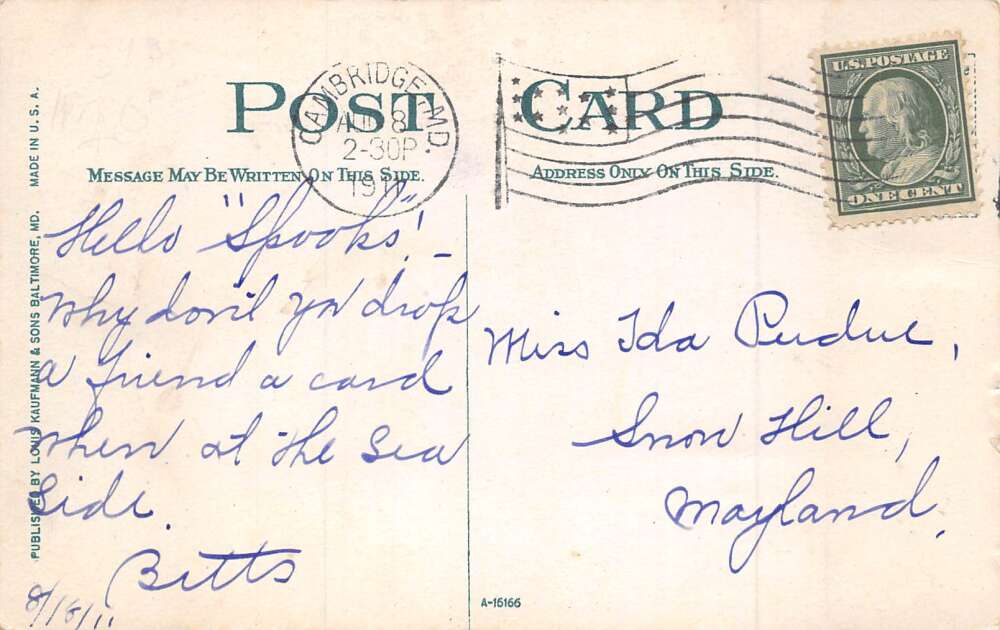 POST CARD
CAMBRIDGE, MD.
2-30P
MESSAGE MAY BE WRITTEN ON THIS SIDE.
ADDRESS ONLY ON THIS SIDE.
U.S. POSTAGE
ONE CENT
Hello "Spooks"!
Why don't yo drop
a friend a card
when at the Sea
Side.
Betts
8/18/11
Miss Ida Perdue,
Snow Hill,
Mayland,
A-16166
PUBLISHED BY LOUIS KAUFMANN & SONS BALTIMORE, MD. MADE IN U.S.A.